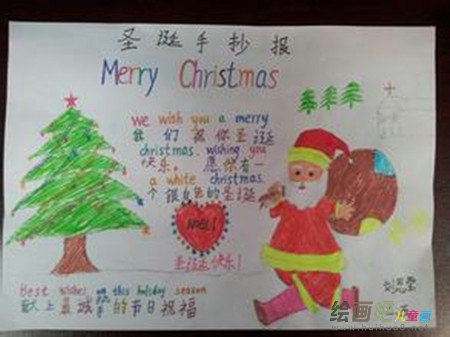 圣诞手抄报
Merry Christmas
we wish you a merry
我们祝你圣诞
christmas. wishing you
快乐。愿你有一
a white christmas.
个银白色的圣诞
NOEL!
圣诞快乐!
Best wishes on this holiday season
献上最诚挚的节日祝福
绘画吧 儿童画